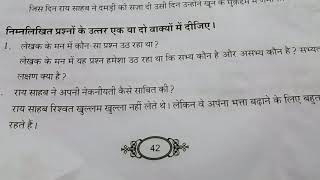 जिस दिन राय साहब ने दमड़ी को सजा दी उसी दिन उन्होंने खून के मुक़दमे में
निम्नलिखित प्रश्नों के उत्तर एक या दो वाक्यों में दीजिए ।
1. लेखक के मन में कौन सा प्रश्न उठ रहा था ?
लेखक के मन में यह प्रश्न हमेशा उठ रहा था कि सभ्य कौन है और असभ्य कौन है ?
लक्षण क्या है ?
राय साहब ने अपनी नेकनीयती कैसे साबित की ?
राय साहब रिश्वत खुल्लम खुल्ला नहीं लेते थे । लेकिन वे अपना भत्ता बढ़ाने के लिए बहुत
रहते हैं ।
42